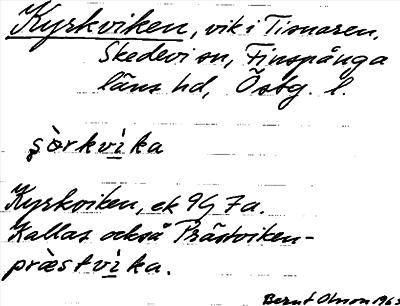 Kyrkviken, vik i Tisnaren,
Skedevi sn, Finspånga
läns hd, Östg. l.
şòrkvìka
Kyrkviken, ek 9G 7a.
Kallas också Prästviken-
præ̀stvìka.
Bernt Olsson 1963